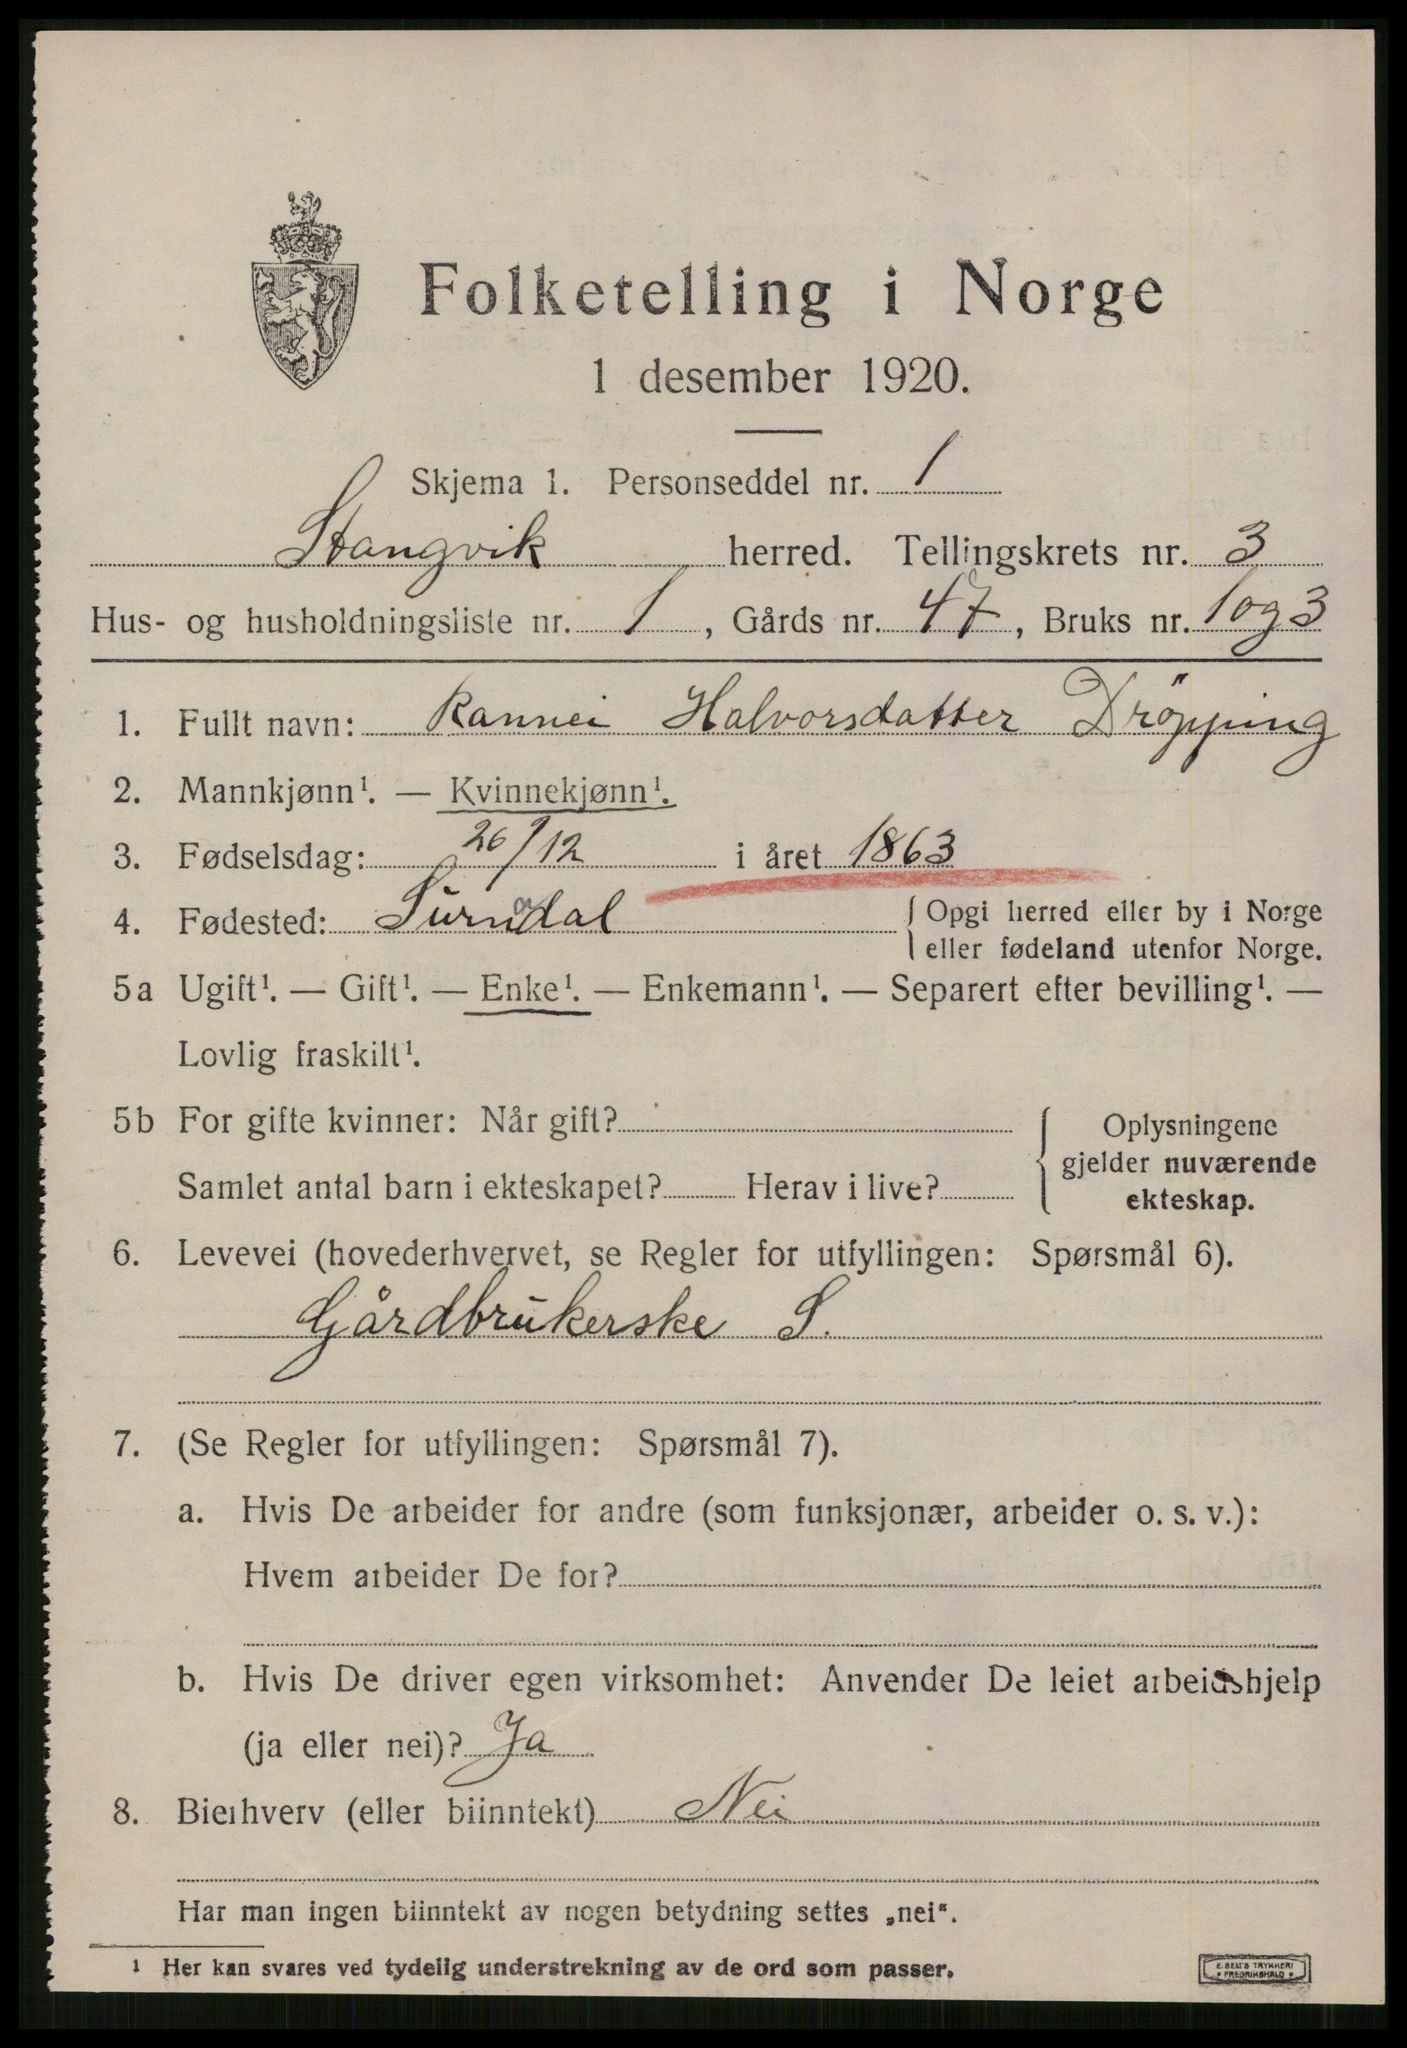 Folketelling i Norge
1 desember 1920.
Skjema 1. Personseddel nr. 1
Stangvik herred. Tellingskrets nr. 3
Hus- og husholdningsliste nr. 1, Gårds nr. 47, Bruks nr. 1 og 3
1. Fullt navn: Rannei Halvorsdatter Dröpping
2. Mannkjønn¹. — Kvinnekjønn¹.
3. Fødselsdag: 26/12 i året 1863
4. Fødested: Surndal { Opgi herred eller by i Norge
eller fødeland utenfor Norge.
5a Ugift¹. — Gift¹. — Enke¹. — Enkemann¹. — Separert efter bevilling¹. —
Lovlig fraskilt¹.
5b For gifte kvinner: Når gift? { Oplysningene
gjelder nuværende
Samlet antal barn i ekteskapet? Herav i live?
ekteskap.
6. Levevei (hovederhvervet, se Regler for utfyllingen: Spørsmål 6).
Gårdbrukerske S.
7. (Se Regler for utfyllingen: Spørsmål 7).
a. Hvis De arbeider for andre (som funksjonær, arbeider o. s. v.):
Hvem arbeider De for?
b. Hvis De driver egen virksomhet: Anvender De leiet arbeidshjelp
(ja eller nei)? Ja
8. Bierhverv (eller biinntekt) Nei
Har man ingen biinntekt av nogen betydning settes „nei“.
1 Her kan svares ved tydelig understrekning av de ord som passer.
E. SEM'S TRYKKERI
* FREDRIKSHALD *